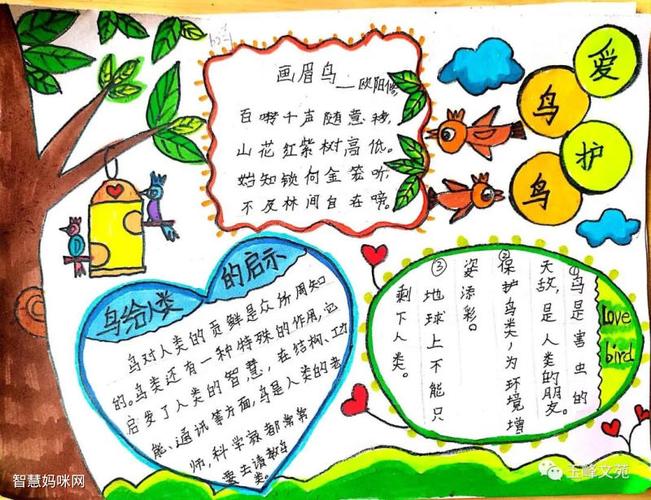 爱鸟护鸟
画眉鸟
——欧阳修
百啭千声随意移,
山花红紫树高低。
始知锁向金笼听,
不及林间自在啼。
鸟给人类的启示
鸟对人类的贡鲜是众所周知
的。鸟类还有一种特殊的作用,它
启发了人类的智慧,在结构、功
能、通讯等方面,鸟是人类的老
师,科学家都常常
要去请教鸟
类。
①鸟是害虫的
天敌,是人类的朋友。
②保护鸟类,为环境增
姿添彩。
③地球上不能只
剩下人类。
Love
bird
智慧妈咪网
玉峰文苑